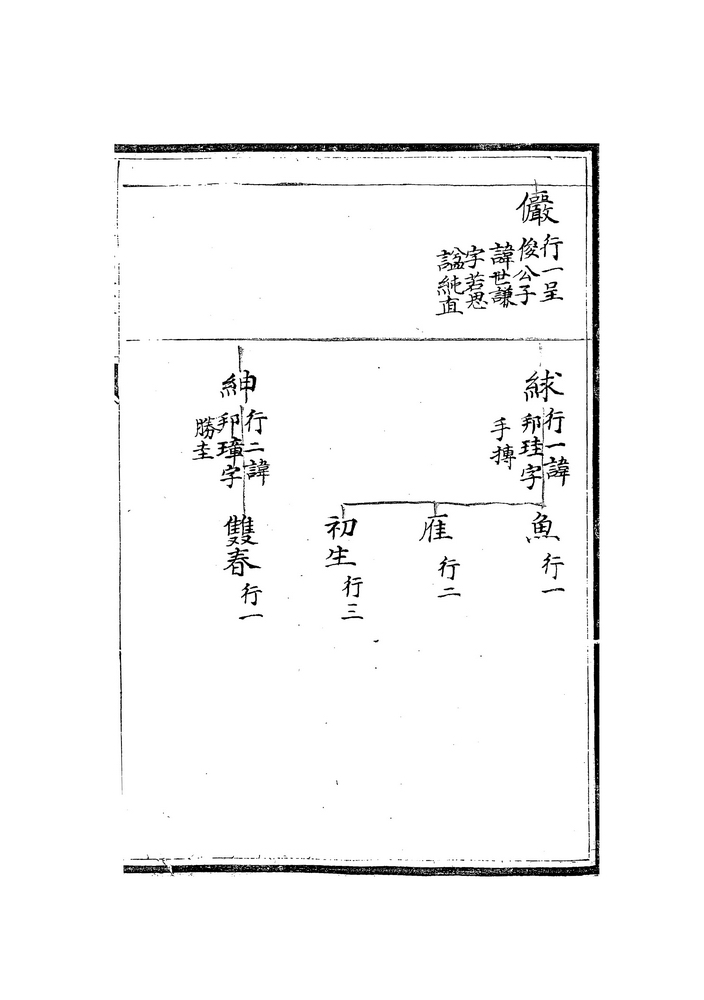 儼
行一呈
俊公子
諱世謙
字若思
諡純直
絿
行一諱
邦珪字
手摶
紳
行二諱
邦璋字
勝圭
魚
行一
雁
行二
初生
行三
雙春
行一